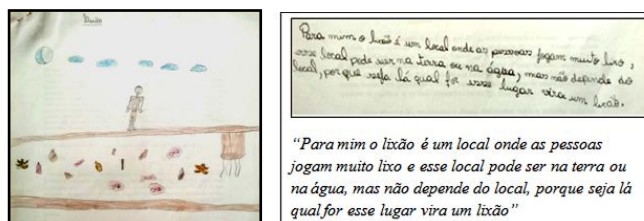 Lixão
Para mim o lixão é um local onde as pessoas jogam muito lixo,
esse local pode ser na terra ou na água, mas não depende do
local, por que seja lá qual for esse lugar vira um lixão.
"Para mim o lixão é um local onde as pessoas
jogam muito lixo e esse local pode ser na terra ou
na água, mas não depende do local, porque seja lá
qual for esse lugar vira um lixão"